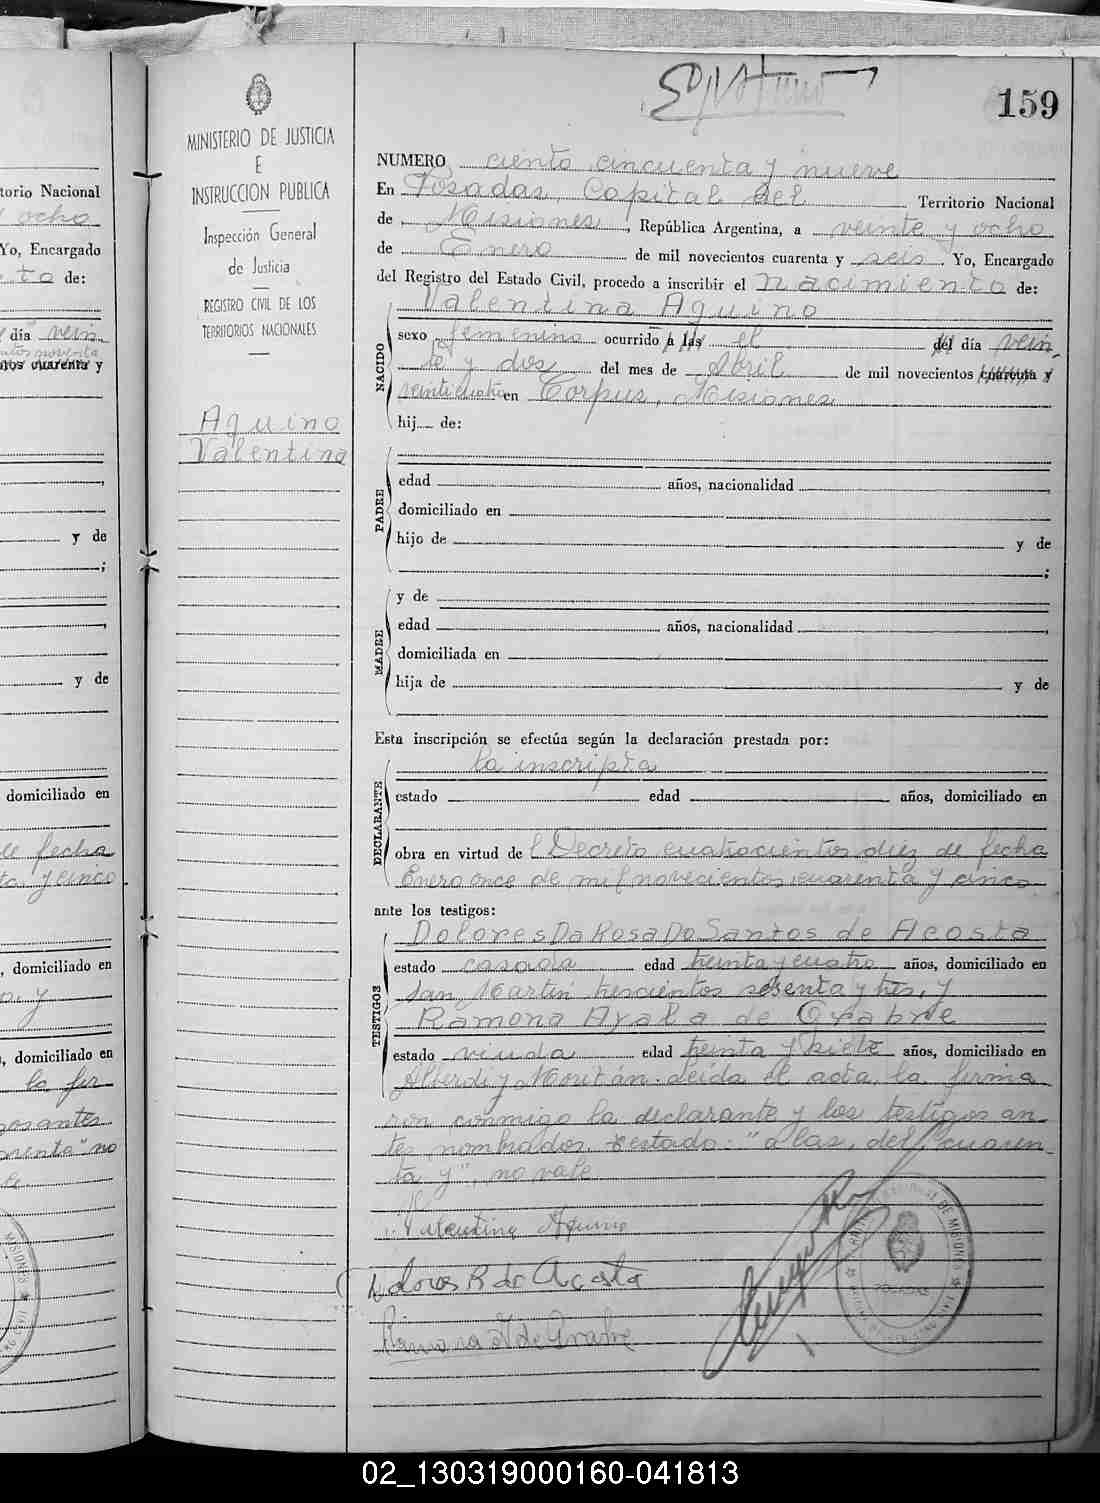 159
MINISTERIO DE JUSTICIA
E
INSTRUCCION PUBLICA
Inspección General
de Justicia
REGISTRO CIVIL DE LOS
TERRITORIOS NACIONALES
Aquino
Valentina
NUMERO ciento cincuenta y nueve
En Posadas, Capital del Territorio Nacional
de Misiones, República Argentina, a veinte y ocho
de Enero de mil novecientos cuarenta y seis. Yo, Encargado
del Registro del Estado Civil, procedo a inscribir el nacimiento de:
Valentina Aquino
NACIDO
sexo femenino ocurrido a las el del día vein-
te y dos del mes de Abril de mil novecientos cuarenta y
veinticuatro en Corpus, Misiones
hij de:
PADRE
edad años, nacionalidad
domiciliado en
hijo de y de
;
MADRE
y de
edad años, nacionalidad
domiciliada en
hija de y de
Esta inscripción se efectúa según la declaración prestada por:
la inscripta
DECLARANTE
estado edad años, domiciliado en
obra en virtud de l Decreto cuatrocientos diez de fecha
Enero once de mil novecientos cuarenta y cinco.
ante los testigos:
TESTIGOS
Dolores Da Rosa Do Santos de Acosta
estado casada edad treinta y cuatro años, domiciliado en
San Martín trescientos sesenta y tres, y
Ramona Ayala de Orabre
estado viuda edad treinta y siete años, domiciliado en
Alberdi y Moritán. Leída el acta, la firma
ron conmigo la declarante y los testigos an-
tes nombrados. Testado: "a las, del, cuaren-
ta y", no vale
Valentina Aquino
Dolores R de Acosta
Ramona A de Orabre
POSADAS
torio Nacional
y ocho
Yo, Encargado
de:
día vein-
cuarenta y
y de
;
y de
domiciliado en
de fecha
ta y cinco.
, domiciliado en
, domiciliado en
la fir
"no
02_130319000160-041813